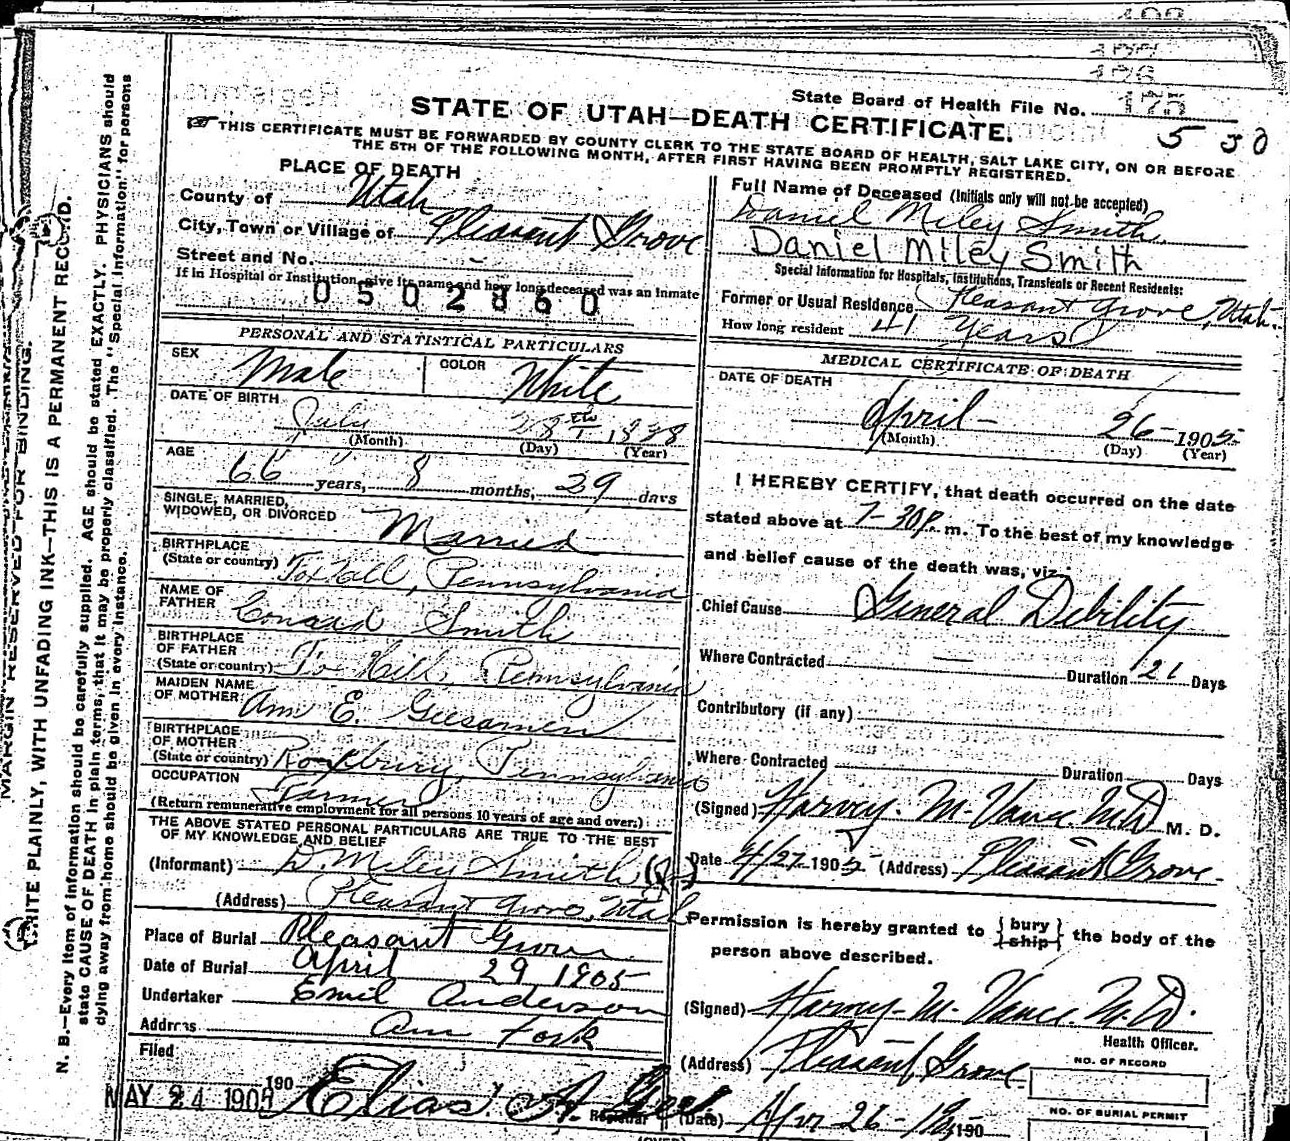 175
State Board of Health File No.
STATE OF UTAH—DEATH CERTIFICATE.
5 30
THIS CERTIFICATE MUST BE FORWARDED BY COUNTY CLERK TO THE STATE BOARD OF HEALTH, SALT LAKE CITY, ON OR BEFORE
THE 5TH OF THE FOLLOWING MONTH, AFTER FIRST HAVING BEEN PROMPTLY REGISTERED.
MARGIN RESERVED FOR BINDING.
WRITE PLAINLY, WITH UNFADING INK—THIS IS A PERMANENT RECORD.
N. B.—Every item of information should be carefully supplied. AGE should be stated EXACTLY. PHYSICIANS should
state CAUSE OF DEATH in plain terms, that it may be properly classified. The "Special Information" for persons
dying away from home should be given in every instance.
PLACE OF DEATH
County of Utah
City, Town or Village of Pleasant Grove
Street and No. -
If in Hospital or Institution, give its name and how long deceased was an inmate
0502860
PERSONAL AND STATISTICAL PARTICULARS
SEX Male COLOR White
DATE OF BIRTH July 28th 1838
(Month) (Day) (Year)
AGE 66 years, 8 months, 29 days
SINGLE, MARRIED,
WIDOWED, OR DIVORCED Married
BIRTHPLACE
(State or country) Fox Hill, Pennsylvania
NAME OF
FATHER Conard Smith
BIRTHPLACE
OF FATHER
(State or country) Fox Hill, Pennsylvania
MAIDEN NAME
OF MOTHER Ann E. Geesamen
BIRTHPLACE
OF MOTHER
(State or country) Roxbury, Pennsylvania
OCCUPATION Farmer
(Return remunerative employment for all persons 10 years of age and over.)
THE ABOVE STATED PERSONAL PARTICULARS ARE TRUE TO THE BEST
OF MY KNOWLEDGE AND BELIEF
(Informant) D. Miley Smith
(Address) Pleasant Grove, Utah
Place of Burial Pleasant Grove
Date of Burial April 29 1905
Undertaker Emil Anderson
Address Am Fork
Filed
MAY 24 1905 190 Elias A. Gee
Registrar
Full Name of Deceased (Initials only will not be accepted)
Daniel Miley Smith
Daniel Miley Smith
Special Information for Hospitals, Institutions, Transients or Recent Residents:
Former or Usual Residence Pleasant Grove, Utah.
How long resident 41 Years
MEDICAL CERTIFICATE OF DEATH
DATE OF DEATH
April - 26 - 1905
(Month) (Day) (Year)
I HEREBY CERTIFY, that death occurred on the date
stated above at 7-30 P. m. To the best of my knowledge
and belief cause of the death was, viz.:
Chief Cause General Debility
Where Contracted —
Duration 21 Days
Contributory (if any)
Where Contracted Duration Days
(Signed) Harvey. M. Vance. M.D. M. D.
Date 4/27 1905 (Address) Pleasant Grove.
Permission is hereby granted to {bury / ship} the body of the
person above described.
(Signed) Harvey. M. Vance. M.D.
Health Officer.
(Address) Pleasant Grove
NO. OF RECORD
NO. OF BURIAL PERMIT
(Date) Apr 26 - 1905 190
(OVER)